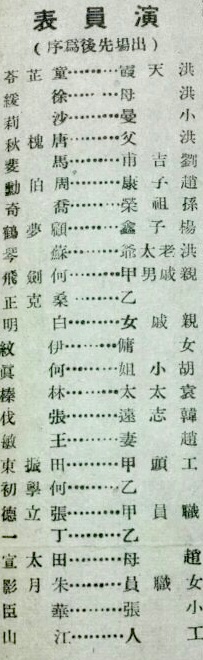 演員表
(出場先後為序)
洪天霞………童芷苓
洪母………徐緩
小曼………沙莉
洪父………唐槐秋
劉吉甫………馬斐
趙子康………周伯勳
孫祖榮………喬奇
楊子鑫………顧夢鶴
洪老太爺………蘇琴
親戚男甲………何劍飛
乙………桑克正
親戚女………白明
女傭………伊紋
胡小姐………何真
袁太太………林榛
韓志遠………張伐
趙妻………王敏
工頭甲………田振東
乙………何學初
職員甲………張立德
乙………丁一
趙母………田太宣
女職員………朱月影
小張………華臣
工人………江山